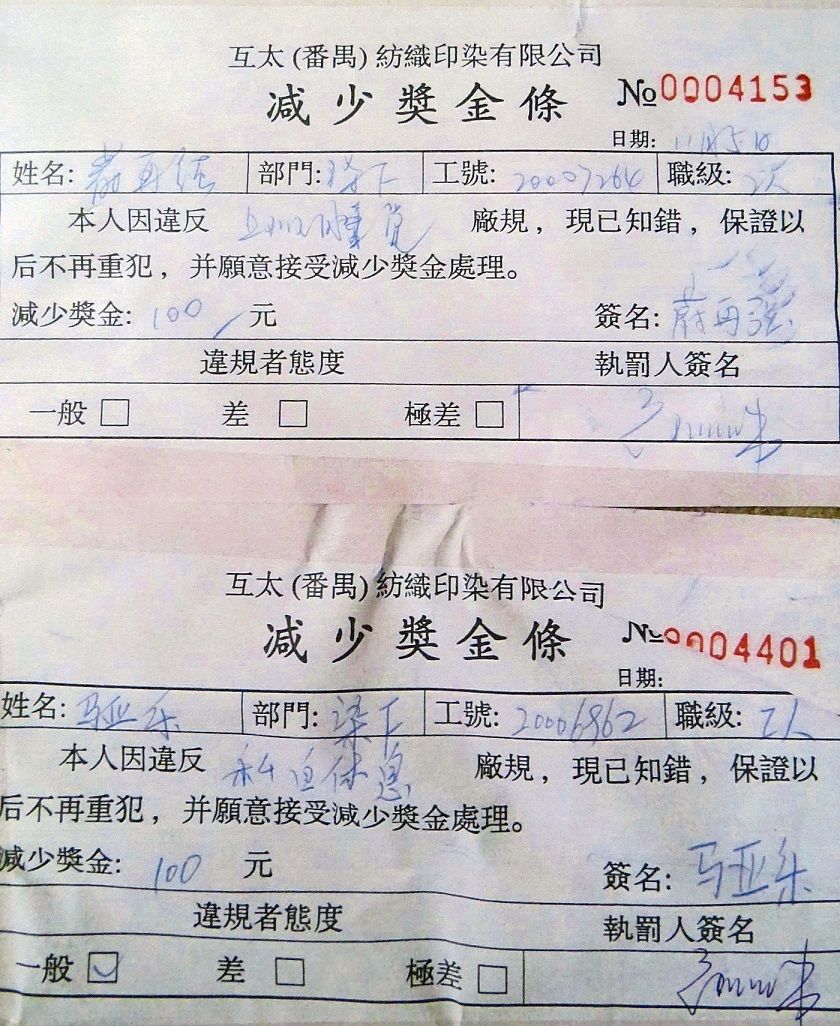 互太(番禺)紡織印染有限公司
減少獎金條 №0004153
日期: 11月5日
姓名: 再 部門: 工號: 20007264 職級: 工人
本人因違反 上班睡觉 廠規，現已知錯，保證以
后不再重犯，并願意接受減少獎金處理。
減少獎金: 100 元 簽名: 再强
違規者態度 執罰人簽名
一般 □ 差 □ 極差 □
互太(番禺)紡織印染有限公司
減少獎金條 №0004401
日期:
姓名: 马亚乐 部門: 染工 工號: 20006862 職級: 工人
本人因違反 私自休息 廠規，現已知錯，保證以
后不再重犯，并願意接受減少獎金處理。
減少獎金: 100 元 簽名: 马亚乐
違規者態度 執罰人簽名
一般 ☑ 差 □ 極差 □